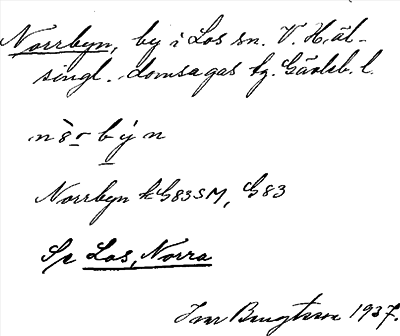 Norrbyn, by i Los sn. V. Häl-
singl. domsagas tg. Gävleb. l.
Norrbyn k G83SM, G83
Se Los, Norra
Bengtsson 1937.